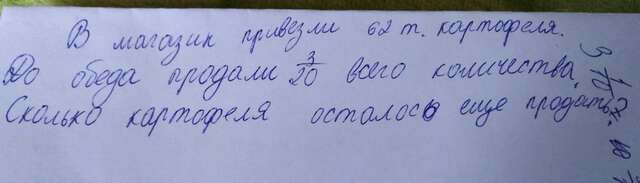 В магазин привезли 62 т. картофеля.
До обеда продали 3/20 всего количества.
Сколько картофеля осталось еще продать?
9 1/10